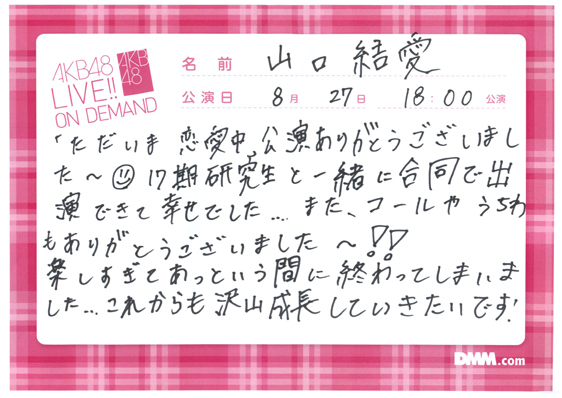 AKB48
LIVE!!
ON DEMAND
AKB
48
名前 山口結愛
公演日 8月 27日 18:00 公演
「ただいま 恋愛中」公演ありがとうございまし
た〜 17期研究生と一緒に合同で出
演できて幸せでした... また、コールやうちわ
もありがとうございました〜!!
楽しすぎてあっという間に終わってしまいま
した... これからも沢山成長していきたいです!
DMM.com